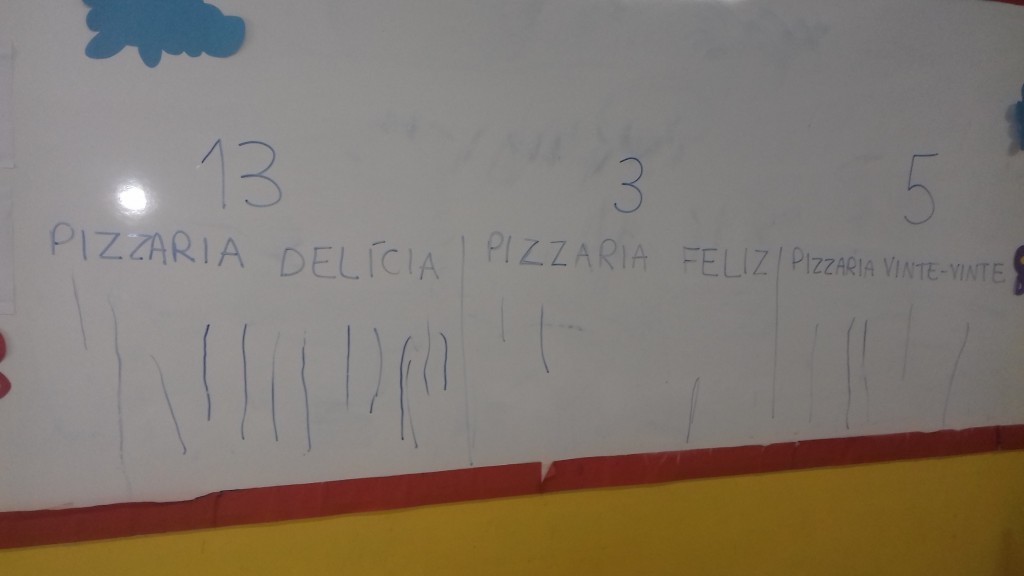 13 3 5
PIZZARIA DELÍCIA PIZZARIA FELIZ PIZZARIA VINTE-VINTE